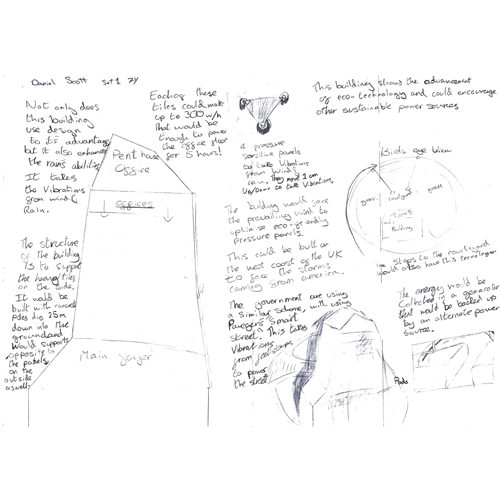 Daniel Scott Set 1 7Y
Not only does
this building
use design
to it's advantage
but it also enhances
the rain's abilities.
It takes
the vibrations
from wind &
Rain.
The structure
of the building
is to support
the heavy tiles
on the side.
It would be
built with concrete
poles dug 25m
down into the
ground and
would support
opposite to
the panels
on the
outside
as well.
Each of these
tiles could make
up to 300 w/h
That would be
enough to power
the office floor
for 5 hours!
Pent house
Office
offices
Main foyer
4 pressure
sensitive panels
to take vibrations
from wind
rain. They move 1 cm
Up/Down to take vibrations.
The building would face
the prevailing wind to
optimise eco-friendly
pressure panels.
This could be built on
the west coast of the UK
to face the storms
coming from america.
The government are using
a similar scheme, with using
Pavegen's "Smart
Street." This takes
vibrations
from footsteps
to power
the street
This building shows the advancement
of eco-technology and could encourage
other sustainable power sources
Birds eye view
Building
Steps to the courtyard
would also have this technology
The energy would be
collected in a generator
that would be backed up
by an alternate power
source.
Pods